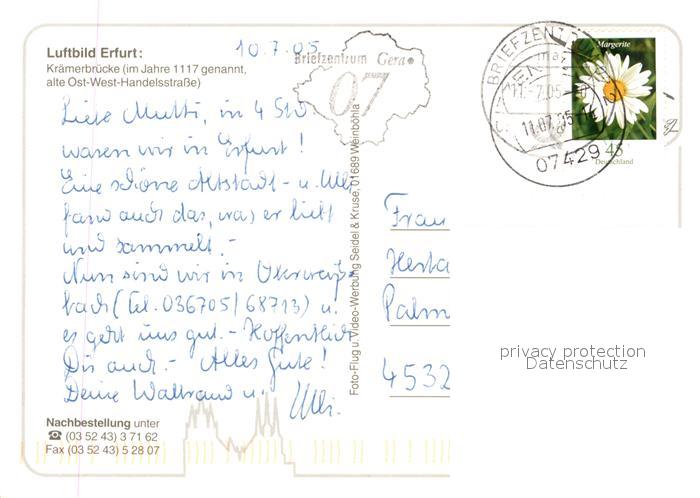 Luftbild Erfurt:
Krämerbrücke (im Jahre 1117 genannt,
alte Ost-West-Handelsstraße)
10.7.05
Briefzentrum Gera
07
BRIEFZENTRUM
11.-7.05
11.07.05
07429
Margerite
45
Deutschland
Liebe Mutti, in 4 Std.
waren wir in Erfurt!
Eine schöne Altstadt - u. Ulli
fand auch das, was er liebt
und sammelt.-
Nun sind wir in Oberweiß-
bach (Tel. 036705/68713) u.
es geht uns gut. - Hoffentlich
Dir auch. - Alles Gute!
Deine Waltraud u.
Ulli.
Foto-Flug u. Video-Werbung Seidel & Kruse, 01689 Weinböhla
Frau
Herta
Palm
4532
privacy protection
Datenschutz
Nachbestellung unter
☎ (03 52 43) 3 71 62
Fax (03 52 43) 5 28 07